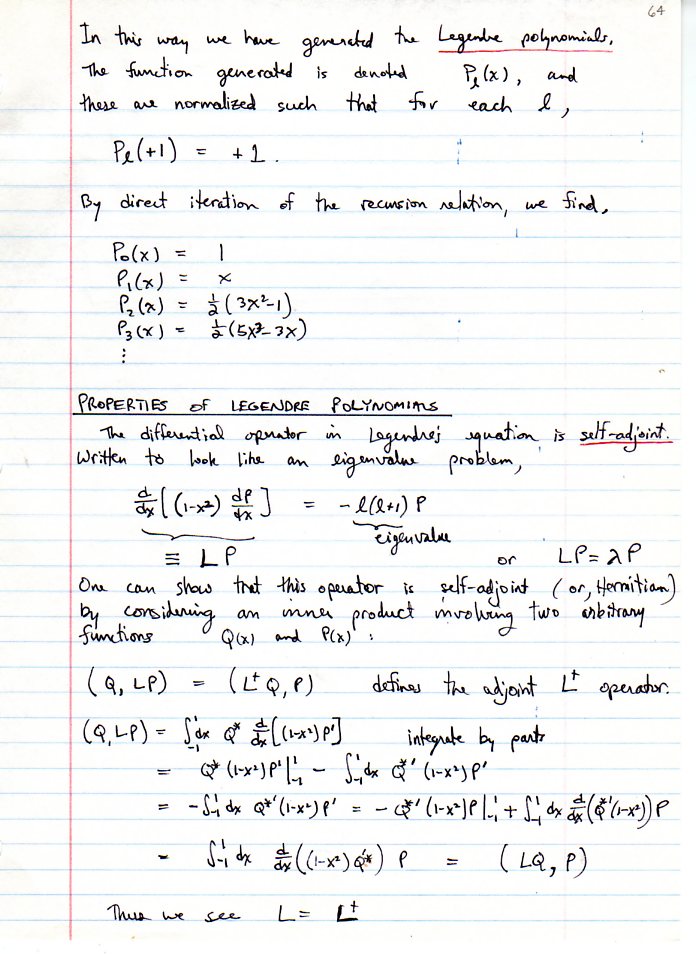 64
In this way we have generated the Legendre polynomials.
The function generated is denoted Pₗ(x), and
these are normalized such that for each l,
Pₗ(+1) = +1.
By direct iteration of the recursion relation, we find,
P₀(x) = 1
P₁(x) = x
P₂(x) = ½(3x²-1)
P₃(x) = ½(5x³-3x)
⋮
PROPERTIES OF LEGENDRE POLYNOMIALS
The differential operator in Legendre's equation is self-adjoint.
Written to look like an eigenvalue problem,
d/dx[(1-x²) dP/dx] = -l(l+1) P
eigenvalue
≡ LP or LP = λP
One can show that this operator is self-adjoint (or, Hermitian)
by considering an inner product involving two arbitrary
functions Q(x) and P(x):
(Q, LP) = (L†Q, P) defines the adjoint L† operator.
(Q, LP) = ∫₋₁¹dx Q* d/dx[(1-x²)P'] integrate by parts
= Q*(1-x²)P'|₋₁¹ - ∫₋₁¹dx Q*'(1-x²)P'
= -∫₋₁¹dx Q*'(1-x²)P' = -Q*'(1-x²)P|₋₁¹ + ∫₋₁¹dx d/dx(Q*'(1-x²))P
= ∫₋₁¹dx d/dx((1-x²)Q'*) P = (LQ, P)
Thus we see L = L†